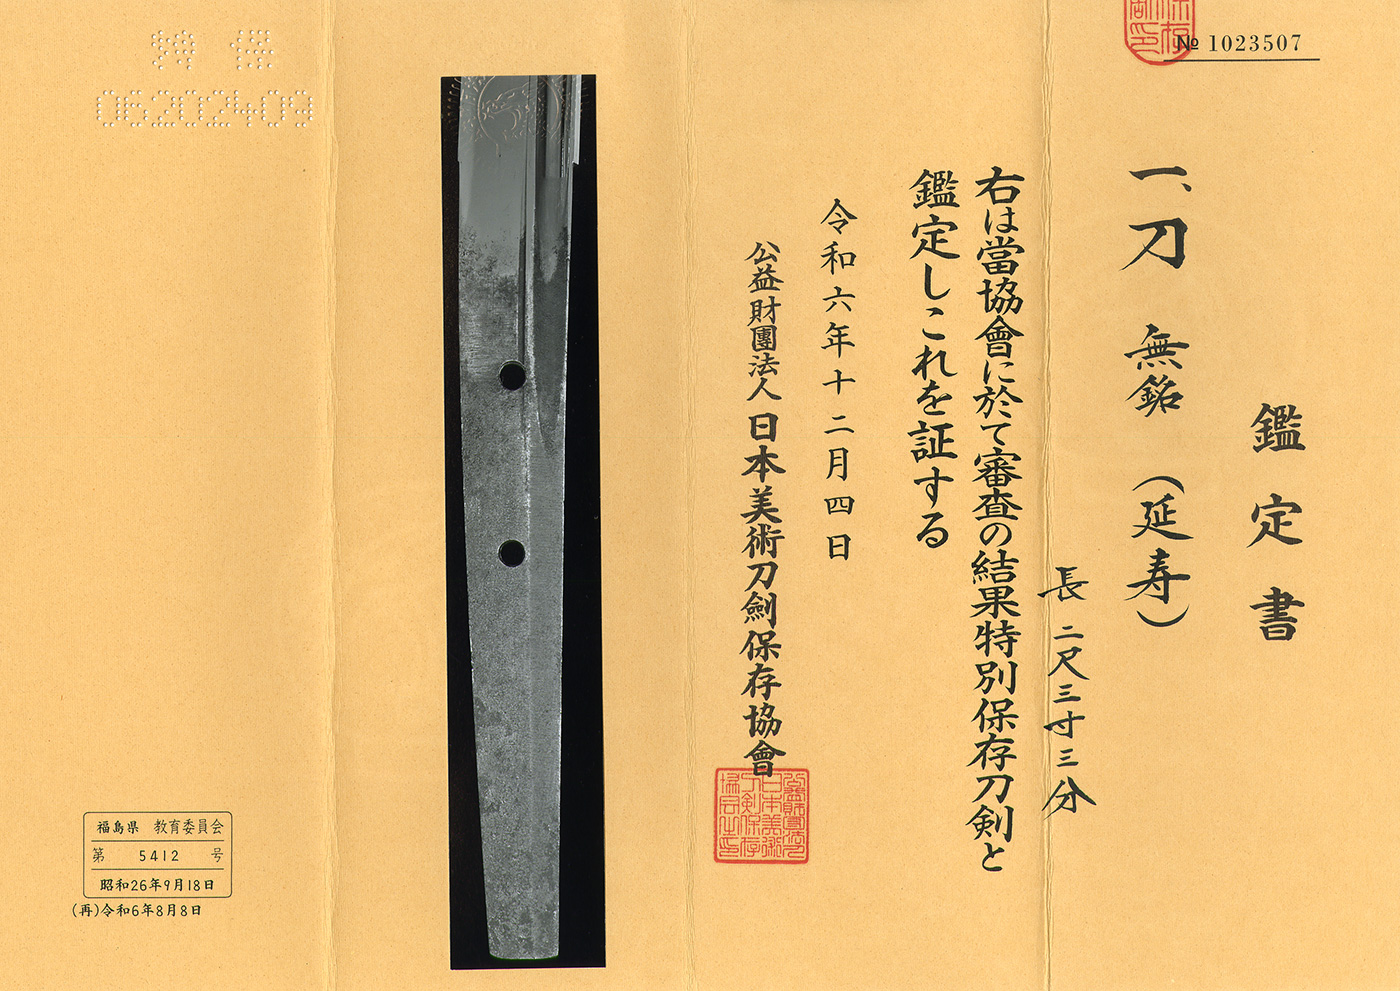 № 1023507
鑑定書
一、刀 無銘(延寿)
長 二尺三寸三分
右は當協會に於て審査の結果特別保存刀剣と
鑑定しこれを証する
令和六年十二月四日
公益財團法人日本美術刀劍保存協會
公益財團法人日本美術刀剣保存協会之印
特保
06202409
福島県 教育委員会
第 5412 号
昭和26年9月18日
(再)令和6年8月8日